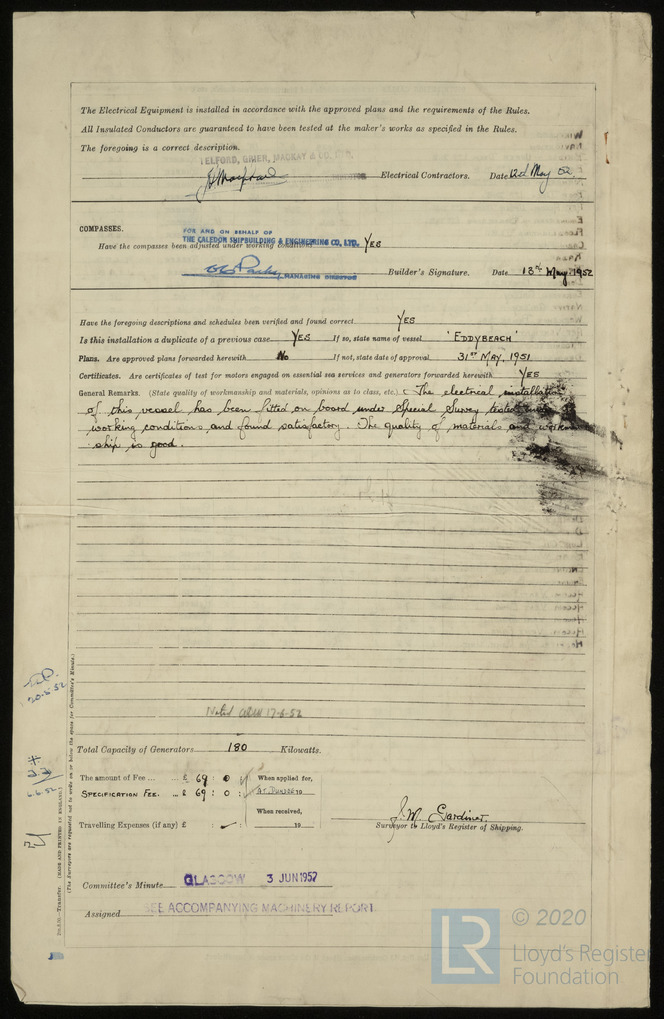 The Electrical Equipment is installed in accordance with the approved plans and the requirements of the Rules.
All Insulated Conductors are guaranteed to have been tested at the maker's works as specified in the Rules.
The foregoing is a correct description.
TELFORD, GRIER, MACKAY & CO. LTD.
Electrical Contractors. Date 12th May 52.
COMPASSES.
FOR AND ON BEHALF OF
THE CALEDON SHIPBUILDING & ENGINEERING CO. LTD.
Have the compasses been adjusted under working conditions YES
MANAGING DIRECTOR Builder's Signature. Date 13th May 1952
Have the foregoing descriptions and schedules been verified and found correct YES
Is this installation a duplicate of a previous case YES If so, state name of vessel 'EDDYBEACH'
Plans. Are approved plans forwarded herewith No If not, state date of approval 31ST MAY, 1951
Certificates. Are certificates of test for motors engaged on essential sea services and generators forwarded herewith YES
General Remarks. (State quality of workmanship and materials, opinions as to class, etc.) The electrical installation
of this vessel has been fitted on board under Special Survey tested under
working conditions and found satisfactory. The quality of materials and workman
ship is good.
Noted 17-6-52
Total Capacity of Generators 180 Kilowatts.
The amount of Fee ... ... £ 69 : 0 : When applied for,
SPECIFICATION FEE. ... £ 69 : 0 : At Dundee 19
When received,
Travelling Expenses (if any) £ : : 19
J. W. Gardiner
Surveyor to Lloyd's Register of Shipping.
Committee's Minute GLASGOW 3 JUN 1952
Assigned SEE ACCOMPANYING MACHINERY REPORT.
20-5-52
6.6.52
Transfer. (MADE AND PRINTED IN ENGLAND.)
(The Surveyors are requested not to write on or below the space for Committee's Minute.)
LR
© 2020
Lloyd's Register
Foundation